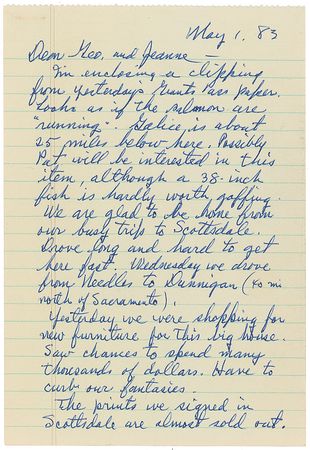 May 1, 83
Dear Geo. and Jeanne —
I'm enclosing a clipping
from yesterday's Grants Pass paper.
Looks as if the salmon are
"running". Galice is about
25 miles below here. Possibly
Pat will be interested in this
item, although a 38-inch
fish is hardly worth gaffing
We are glad to be home from
our busy trip to Scottsdale.
Drove long and hard to get
here fast. Wednesday we drove
from Needles to Dunnigan (40 mi
north of Sacramento).
Yesterday we were shopping for
new furniture for this big house.
Saw chances to spend many
thousands of dollars. Have to
curb our fantasies.
The prints we signed in
Scottsdale are almost sold out.